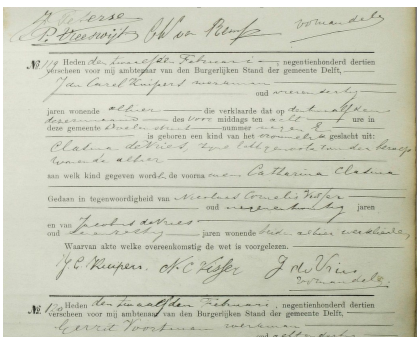 A. Peterse
P. Vreeswijk
voormandels
No. 119 Heden den twaalfden Februari, negentienhonderd dertien
verscheen voor mij ambtenaar van den Burgerlijken Stand der gemeente Delft,
Jan Carel Kuipers
oud
jaren wonende alhier die verklaarde dat op den twaalfden
dezer maand des voor middags ten acht ure in
deze gemeente nummer negen
is geboren een kind van het vrouwelijk geslacht uit:
Clasina de Vries, zijne echtgenoote zonder beroep
wonende alhier
aan welk kind gegeven wordt de voornamen Catharina Clasina
Gedaan in tegenwoordigheid van Nicolaas Cornelis Visser
oud jaren
en van Jacobus de Vries
oud jaren wonende beiden alhier
Waarvan akte welke overeenkomstig de wet is voorgelezen.
J.C. Kuipers N.C. Visser J. de Vries
voormandels
No. 120 Heden den twaalfden Februari, negentienhonderd dertien
verscheen voor mij ambtenaar van den Burgerlijken Stand der gemeente Delft,
Gerrit Voortman werkman
oud